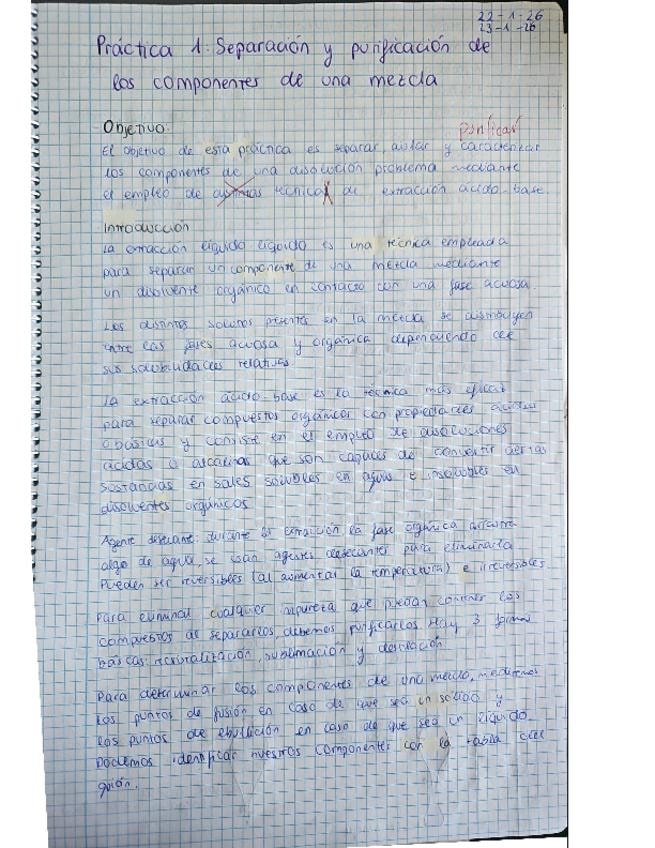 22-1-26
23-1-26
Práctica 1: Separación y purificación de
los componentes de una mezcla
Objetivo:
purificar
El objetivo de esta práctica es separar, aislar y caracterizar
los componentes de una disolución problema mediante
el empleo de distintas técnicas de extracción ácido-base.
Introducción
La extracción líquido líquido es una técnica empleada
para separar un componente de una mezcla mediante
un disolvente orgánico en contacto con una fase acuosa.
Los distintos solutos presentes en la mezcla se distribuyen
entre las fases acuosa y orgánica dependiendo de
sus solubilidades relativas.
La extracción ácido-base es la técnica más eficaz
para separar compuestos orgánicos con propiedades ácidas
o básicas y consiste en el empleo de disoluciones
ácidas o alcalinas que son capaces de convertir dichas
sustancias en sales solubles en agua e insolubles en
disolventes orgánicos.
Agente desecante: durante la extracción la fase orgánica arrastra
algo de agua, se usan agentes desecantes para eliminarla
Pueden ser reversibles (al aumentar la temperatura) e irreversibles
Para eliminar cualquier impureza que puedan contener los
compuestos al separarlos, debemos purificarlos. Hay 3 formas
básicas: recristalización, sublimación y destilación.
Para determinar los componentes de una mezcla, medimos
los puntos de fusión en caso de que sea un sólido y
los puntos de ebullición en caso de que sea un líquido.
Podemos identificar nuestros componentes con la tabla del
guión.